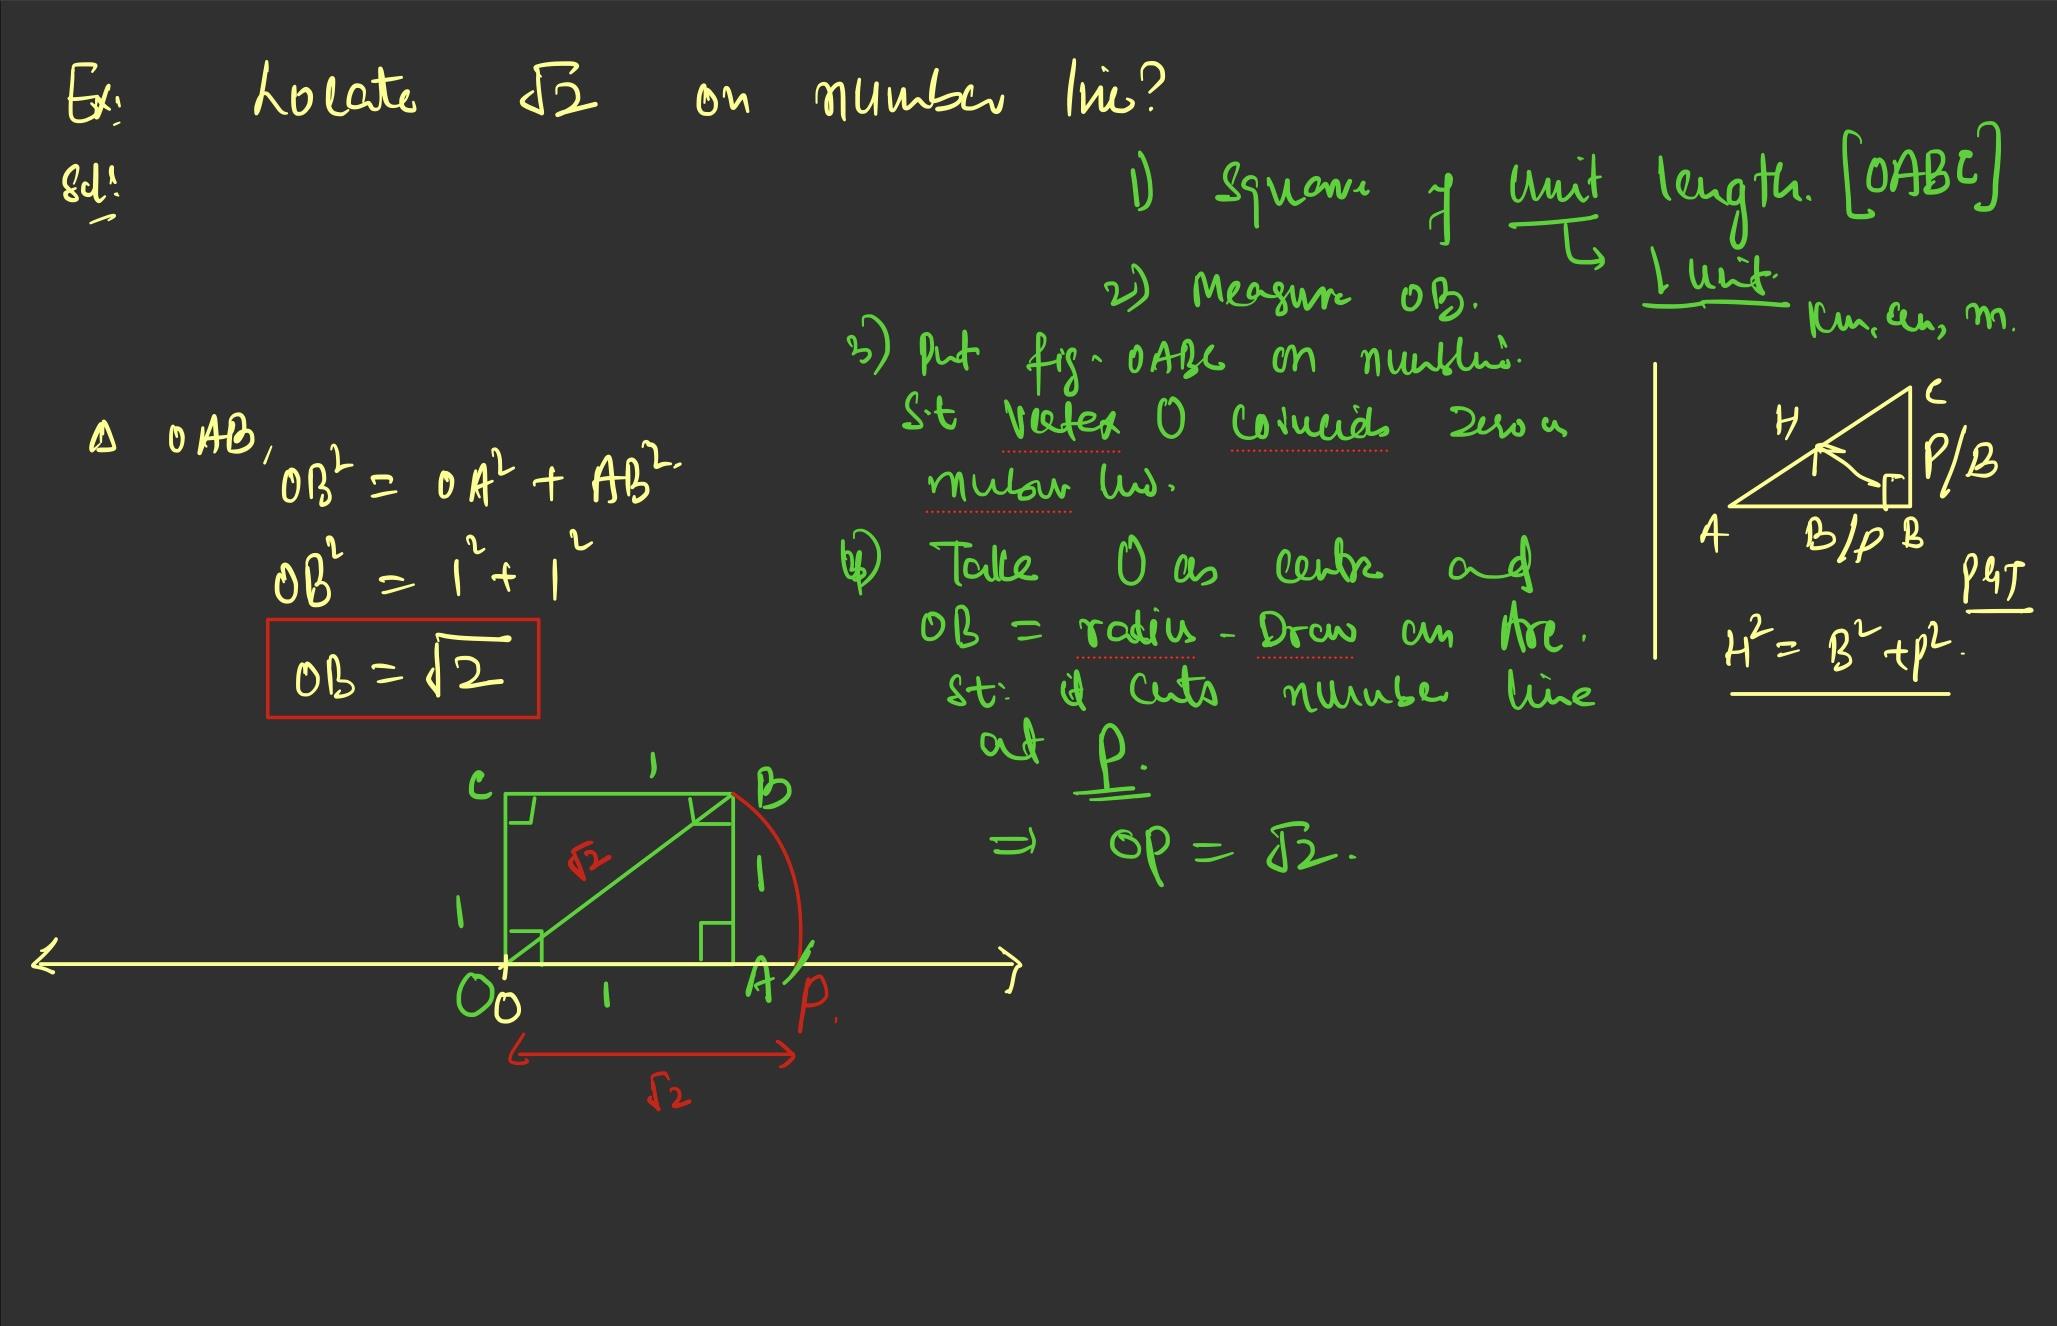 Ex: Locate √2 on number line?
Sol:
1) Square of unit length. [OABC]
↳ 1 unit.
km, cm, m.
2) Measure OB.
3) Put fig. OABC on numbline.
S.t vertex O coincids zero on
number line.
4) Take O as centre and
OB = radius - Draw an Arc.
St: it cuts number line
at P.
⇒ OP = √2.
Δ OAB,
OB² = OA² + AB².
OB² = 1² + 1²
OB = √2
C
H
P/B
A
B/P
B
PGT
H² = B² + P².
1
C
B
√2
1
1
O
0
1
A
P.
√2